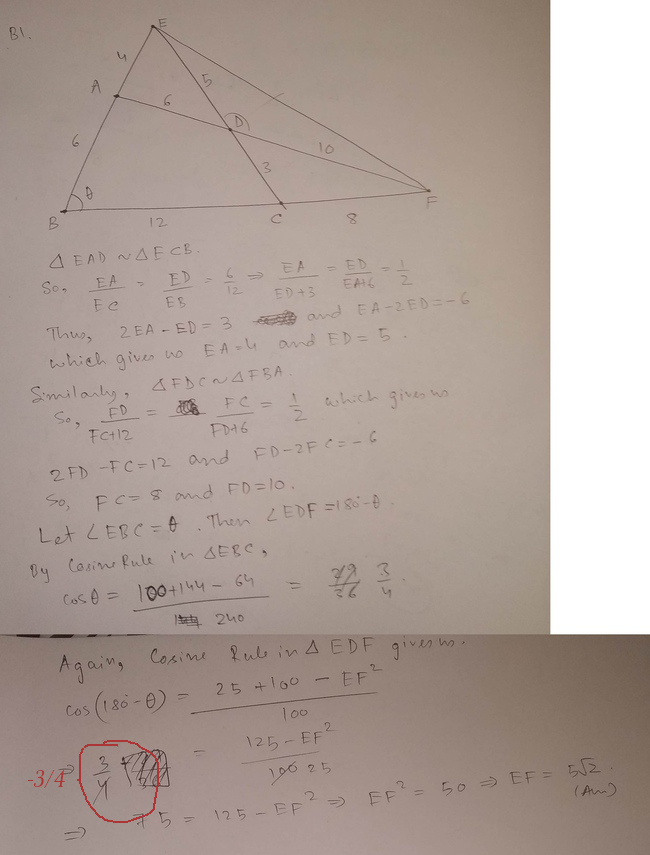 B1.
E
4
5
A
6
D
10
6
3
θ
F
B
12
C
8
△EAD ~ △ECB.
So, EA/EC = ED/EB = 6/12 ⇒ EA/ED+3 = ED/EA+6 = 1/2
Thus, 2EA - ED = 3 and EA - 2ED = -6
which gives us EA = 4 and ED = 5.
Similarly, △FDC ~ △FBA.
So, FD/FC+12 = FC/FD+6 = 1/2 which gives us
2FD - FC = 12 and FD - 2FC = -6
So, FC = 8 and FD = 10.
Let ∠EBC = θ. Then ∠EDF = 180° - θ.
By Cosine Rule in △EBC,
cosθ = 100+144-64/240 = 3/4.
Again, Cosine Rule in △EDF gives us.
cos(180° - θ) = 25+100-EF²/100
-3/4 ⇒ 3/4 = 125-EF²/100 25
⇒ 75 = 125 - EF² ⇒ EF² = 50 ⇒ EF = 5√2.
(Ans)